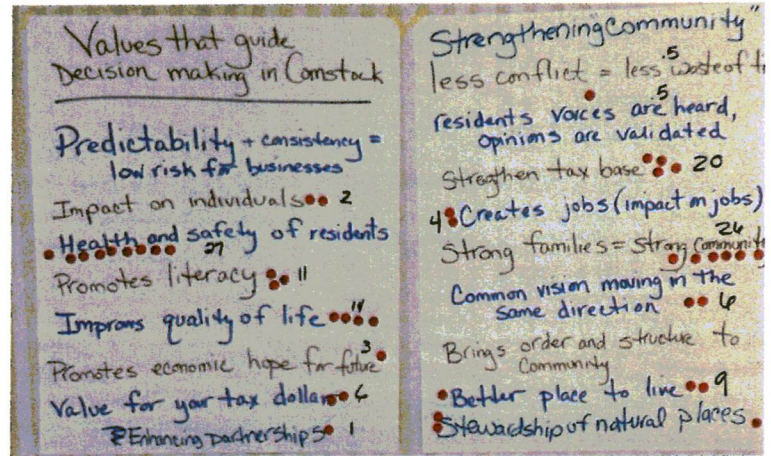 Values that guide
Decision making in Comstock
Predictability + consistency =
low risk for businesses
Impact on individuals 2
Health and safety of residents
27
Promotes literacy 11
Improves quality of life 14
Promotes economic hope for future 3
Value for your tax dollars 6
Enhancing partnerships 1
Strengthening Community"
.5
less conflict = less waste of
.5
residents voices are heard,
opinions are validated
Stregthen tax base 20
4 Creates jobs (impact on jobs)
26
Strong families = Strong Communit
Common vision moving in the
same direction 6
Brings order and structure to
Community
Better place to live 9
Stewardship of natural places